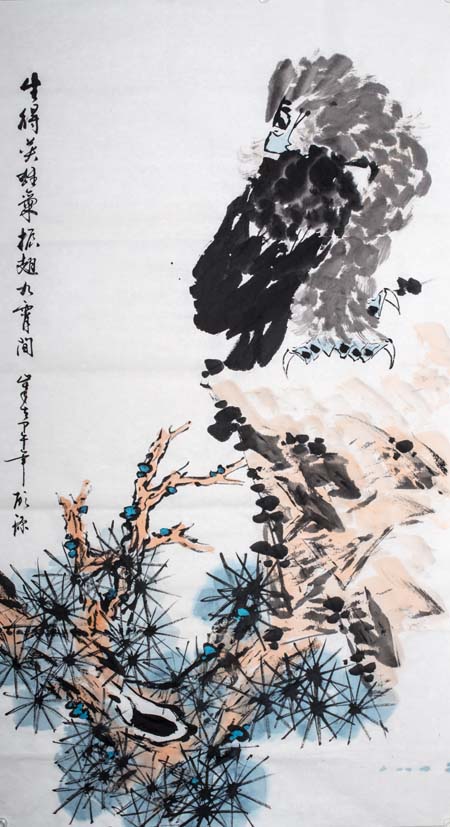 生得英雄气振翅九霄间 岁在甲午年